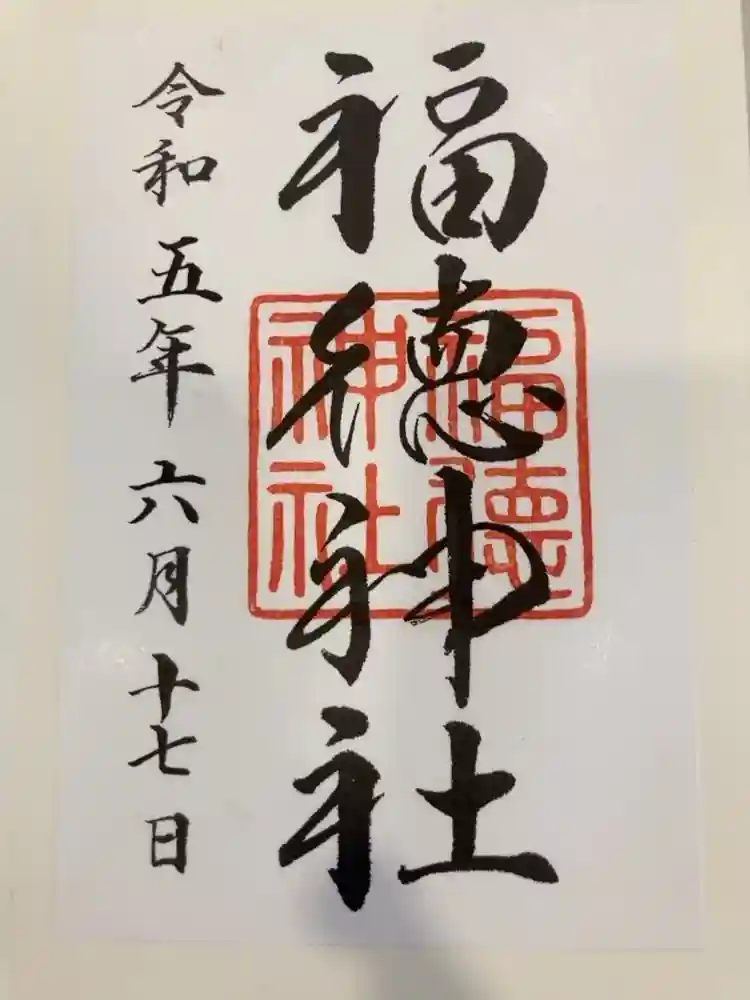 福德神社
福德神社
令和五年六月十七日